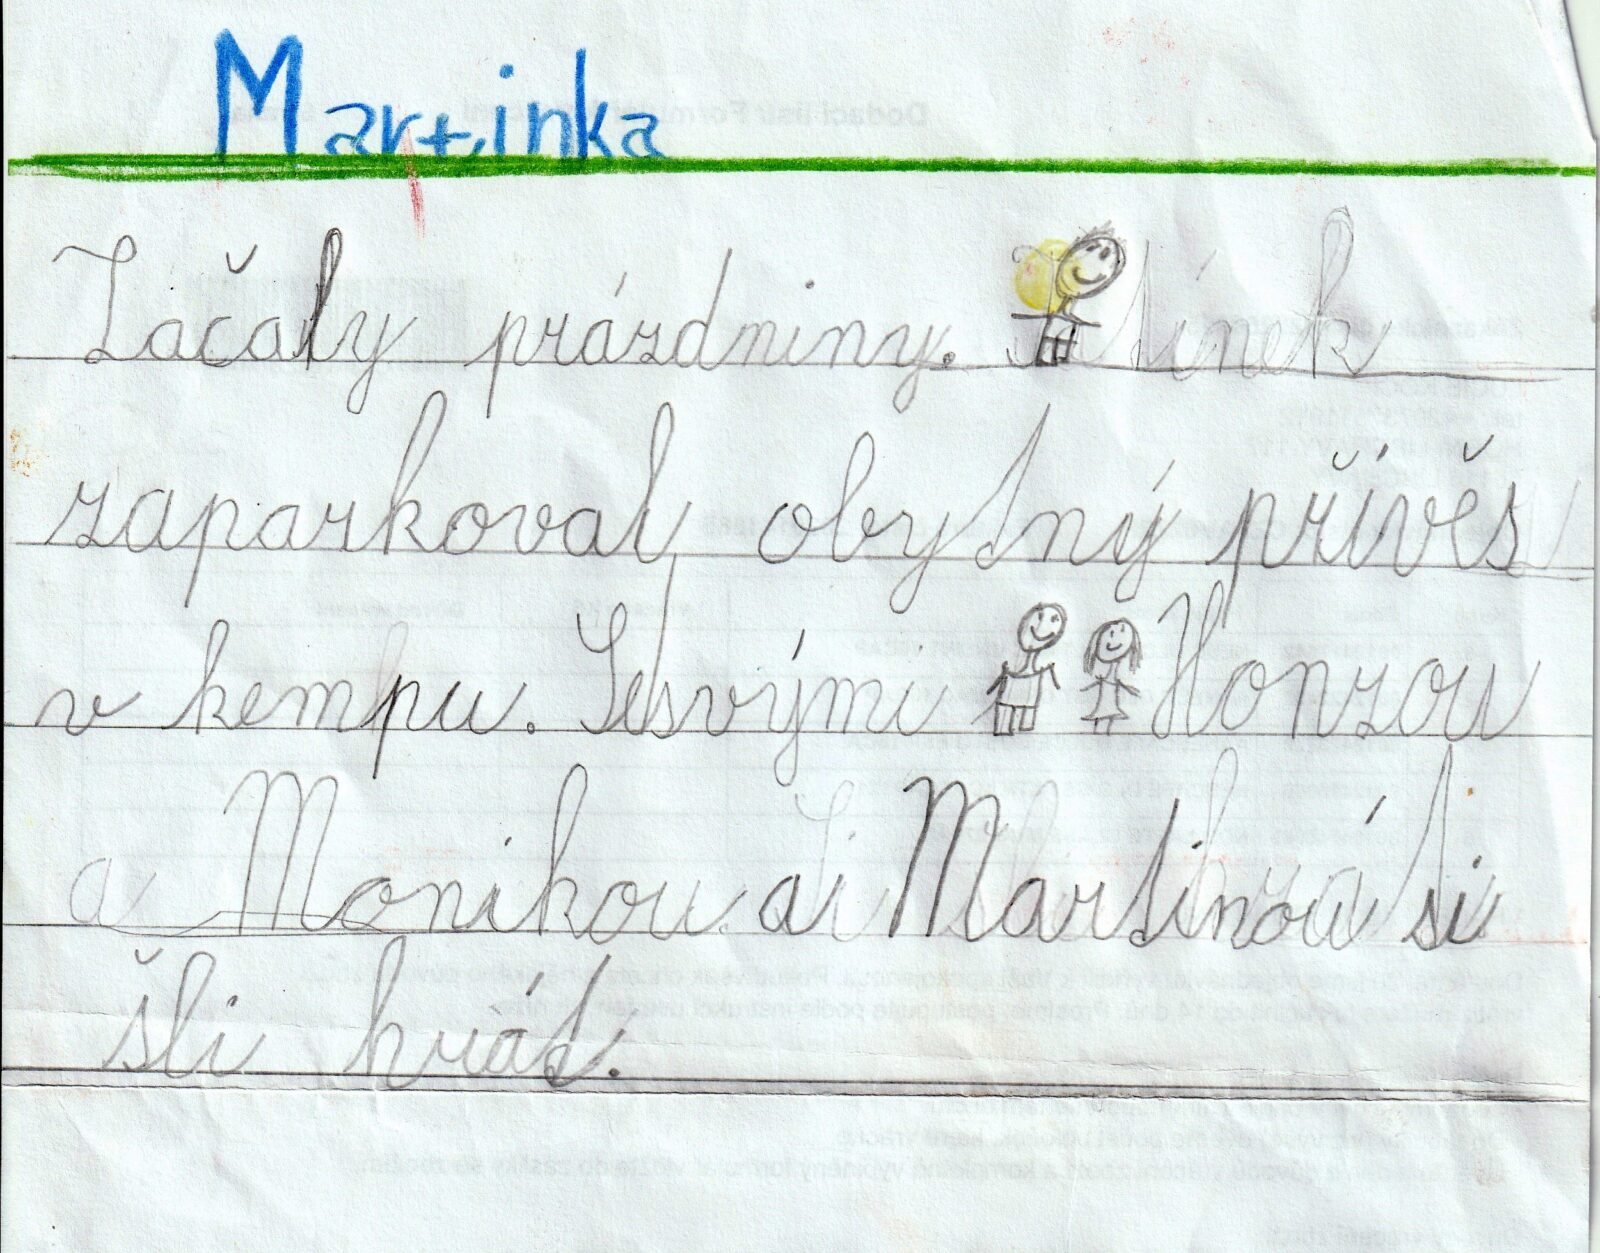 Martinka
Začaly prázdniny. Tatínek
zaparkovaly obytný přívěs
v kempu. Se svými Honzou
a Monikou ai Martinou si
šli hrát.